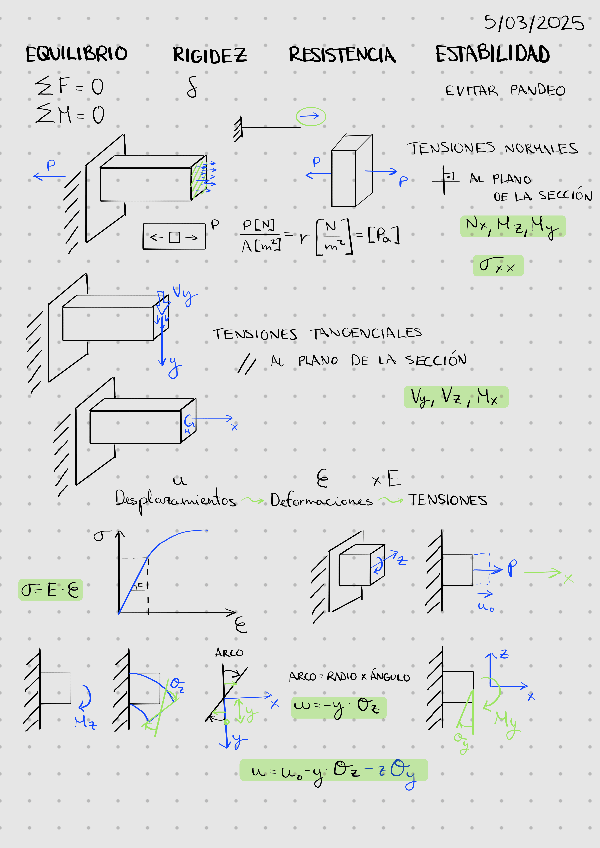 5/03/2025
EQUILIBRIO RIGIDEZ RESISTENCIA ESTABILIDAD
ΣF = 0 δ EVITAR PANDEO
ΣM = 0
TENSIONES NORMALES
P P P
⊥ AL PLANO
DE LA SECCIÓN
<-□-> P
P[N]/A[m²] = r [N/m²] = [Pa]
Nx, Mz, My
σxx
Vy
y
TENSIONES TANGENCIALES
// AL PLANO DE LA SECCIÓN
Vy, Vz, Mx
x
u ε x E
Desplazamientos → Deformaciones → TENSIONES
σ
E
σ = E · ε
ε
z
P
x
u₀
ARCO
Mz
θz
x
y
y
ARCO = RADIO x ÁNGULO
u = -y · θz
z
x
My
θy
u = u₀ - y · θz - z θy